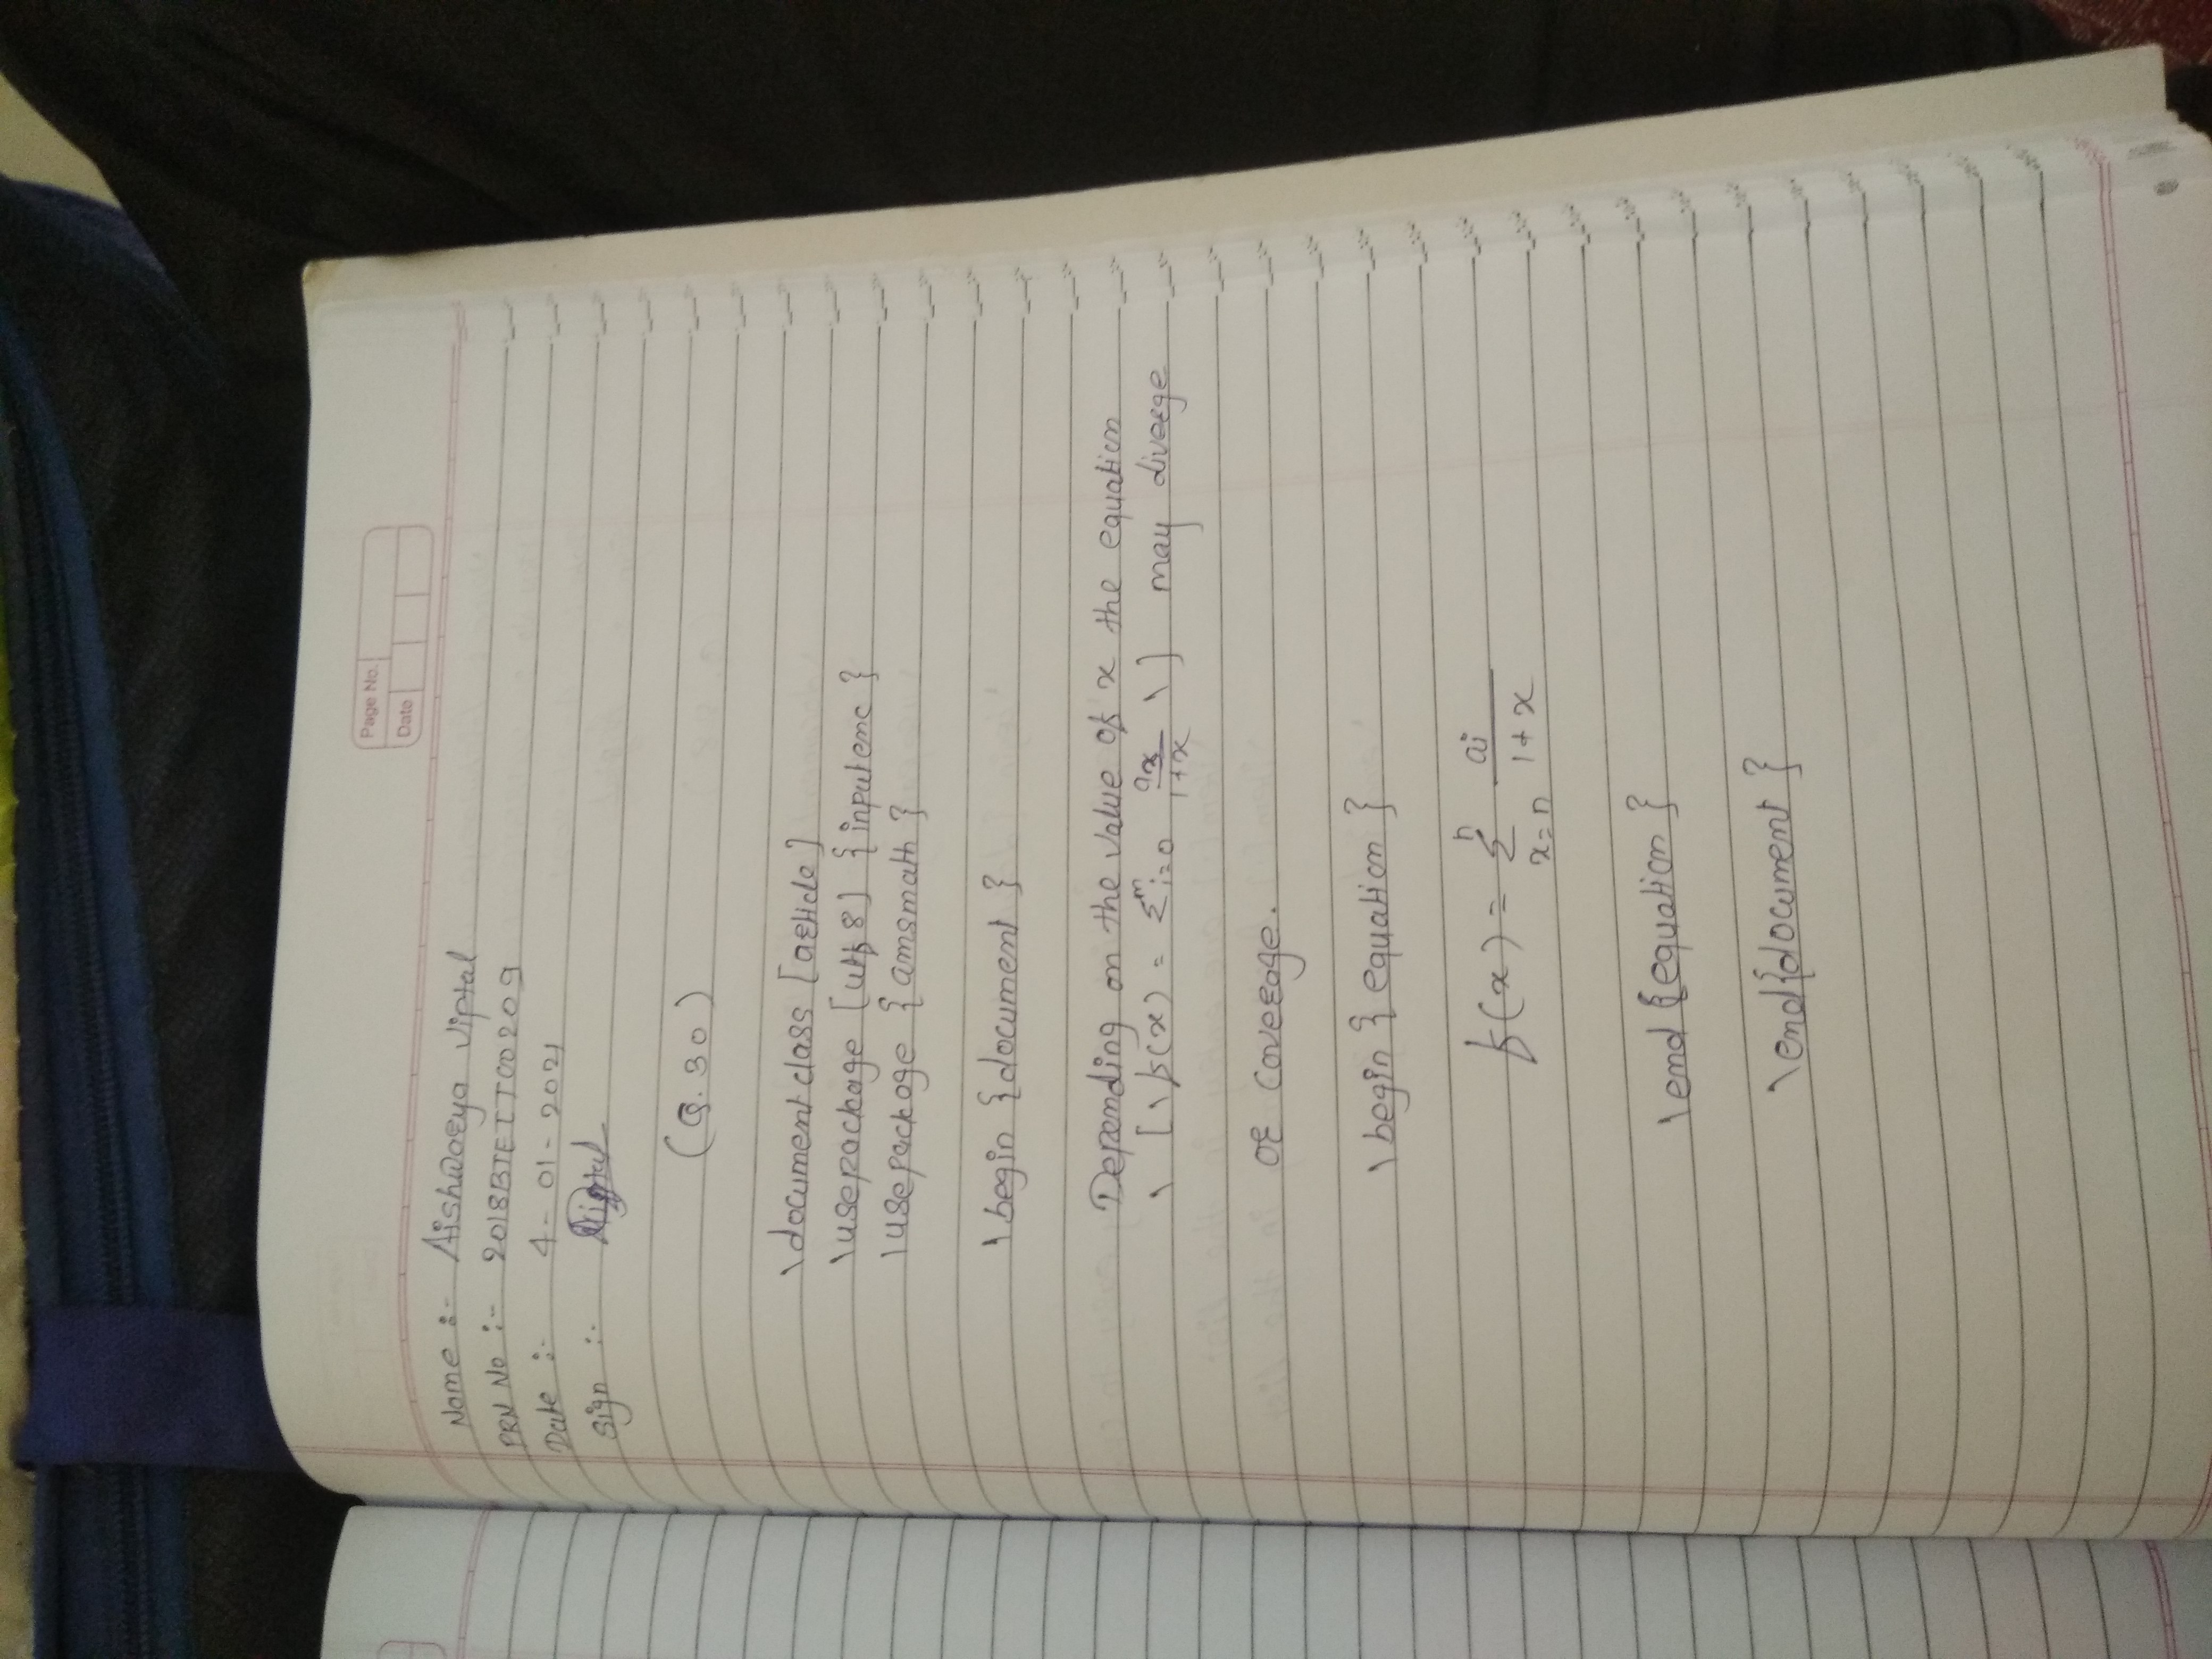 Page No.
Date
Name :- Aishwarya Viptal
PRN No :- 2018BTECIT00209
Date :- 4-01-2021
Sign :-
(Q.30)
\document class [article]
\usepackage [utf 8] {inputenc}
\usepackage {amsmath}
\begin {document}
Depending on the value of x the equation
\[ \f(x) = Σ^m i=0 ax/1+x \] may diverge
or coverage.
\begin {equation}
f(x) = Σ^n x=n ai/1+x
\end {equation}
\end{document}